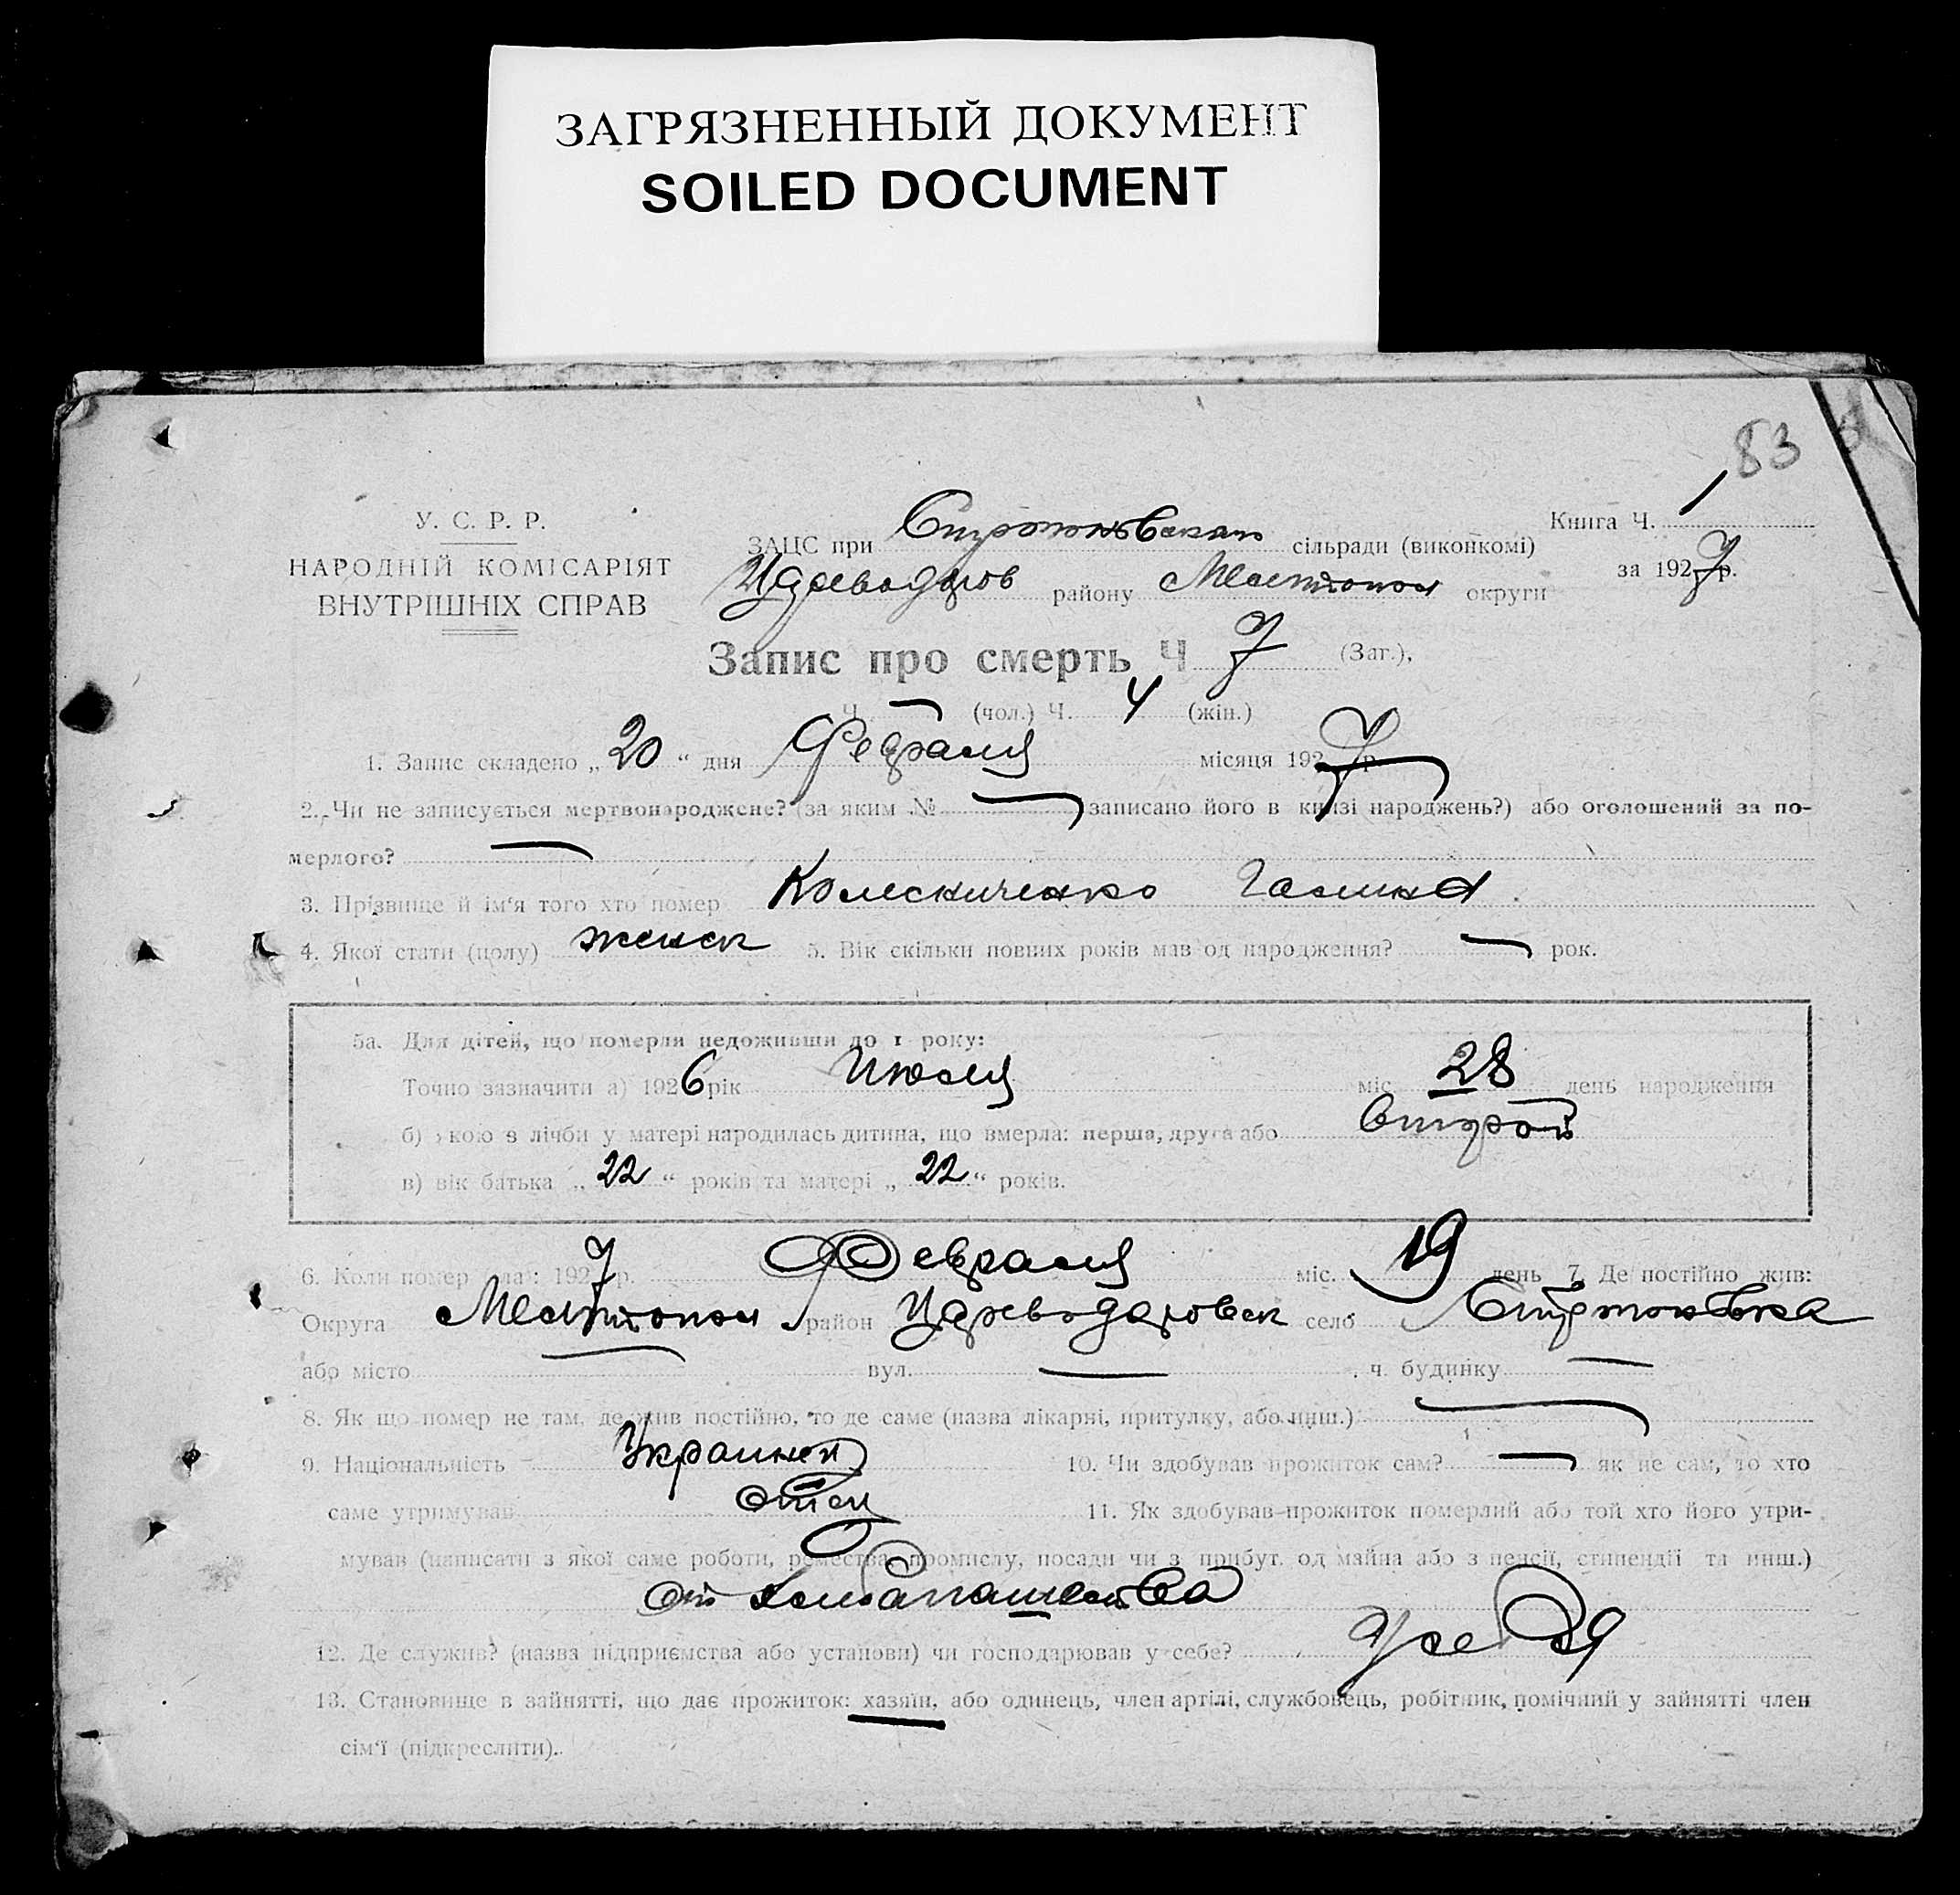 ЗАГРЯЗНЕННЫЙ ДОКУМЕНТ
SOILED DOCUMENT
83
У. С. Р. Р.
НАРОДНІЙ КОМІСАРІЯТ
ВНУТРІШНІХ СПРАВ
Книга Ч. 1
за 1927 р.
ЗАЦС при сільради (виконкомі)
району округи
Запис про смерть Ч 7 (Заг.),
Ч. — (чол.) Ч. 4 (жін.)
1. Запис складено „ 20 “ дня Февраля місяця 1927 р.
2. Чи не записується мертвонароджене? (за яким № — записано його в книзі народжень?) або оголошений за по-
мерлого? —
3. Прізвище й ім'я того хто помер Колесниченко Галина
4. Якої стати (полу) женск 5. Вік скільки повних років мав од народження? — рок.
5а. Для дітей, що померли недоживши до 1 року:
Точно зазначити а) 1926 рік Июля міс. 28 день народження
б) кою з лічби у матері народилась дитина, що вмерла: перша, друга або второй
в) вік батька „ 22 “ років та матері „ 22 “ років.
6. Коли помер (ла): 1927 р. Февраля міс. 19 день 7. Де постійно жив:
Округа район Цареводаровск село
або місто — вул. — ч. будинку —
8. Як що помер не там, де жив постійно, то де саме (назва лікарні, притулку, або инш.) —
9. Національність Украинец 10. Чи здобував прожиток сам? — як не сам, то хто
саме утримував отец 11. Як здобував прожиток померлий або той хто його утри-
мував (написати з якої саме роботи, ремества, промислу, посади чи з прибут. од майна або з пенсії, стипендії та инш.)
от хлебопашества
12. Де служив? (назва підприємства або установи) чи господарював у себе? у себя
13. Становище в зайнятті, що дає прожиток: хазяїн, або одинець, член артілі, службовець, робітник, помічний у зайнятті член
сім'ї (підкреслити).